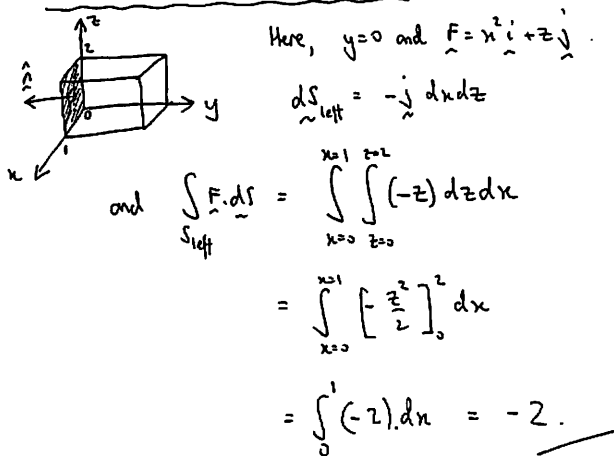 Here, y=0 and F = x² i + z j .
dS left = - j dx dz
and ∫ S left F . dS = ∫ x=0 x=1 ∫ z=0 z=2 (-z) dz dx
= ∫ x=0 x=1 [ - z²/2 ] 0 2 dx
= ∫ 0 1 (-2) . dx = -2 .
z
2
n̂
0
y
1
x